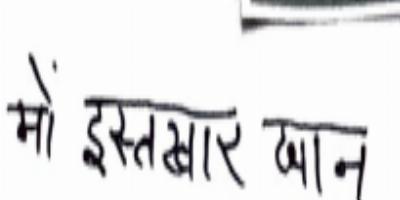 मों इस्तखार खान